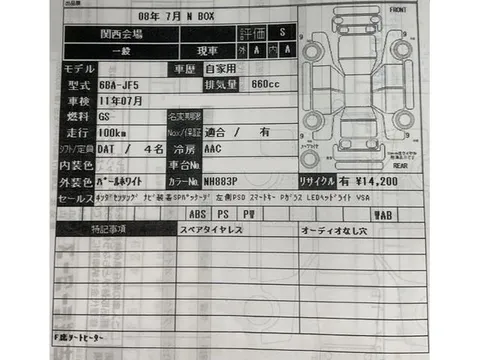 出品票
08年 7月 N BOX
FRONT
関西会場 評価 S
一般 現車 外 A 内 A
モデル 車歴 自家用
型式 6BA-JF5 排気量 660cc
車検 11年07月
燃料 GS 名変期限
走行 100km Nox/保証 適合 / 有
シフト/定員 DAT / 4名 冷房 AAC
スペアタイヤ
内装色 車台No.
REAR
外装色 パールホワイト カラーNo. NH883P リサイクル 有 ¥14,200
セールス ホンダセンシング ナビ装着SPパッケージ 左側PSD スマートキー Pガラス LEDヘッドライト VSA
ABS PS PW WAB
特記事項 スペアタイヤレス オーディオなし穴
F席シートヒーター